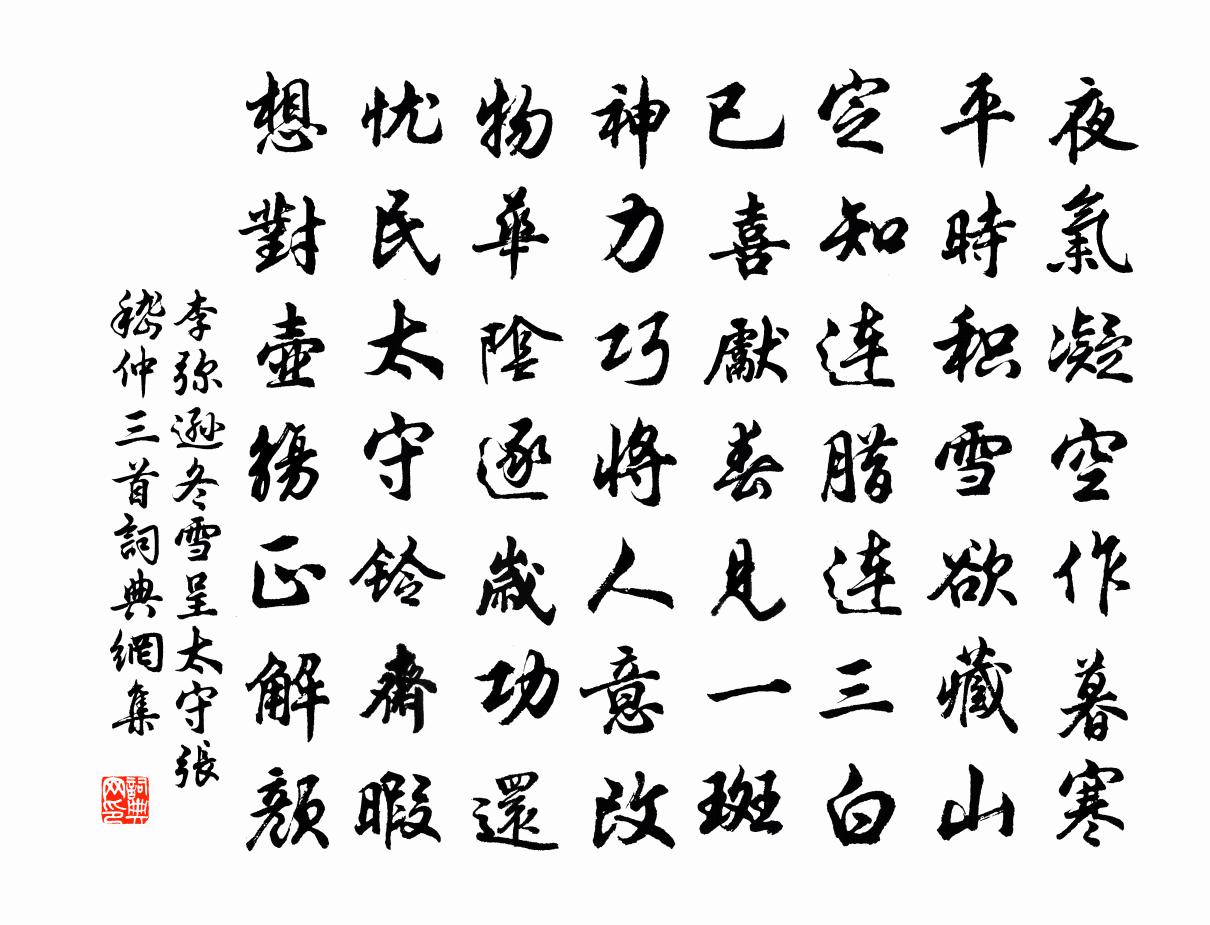 夜氣凝空作暮寒
平時积雪欲藏山
定知连腊连三白
已喜獻春見一斑
神力巧將人意改
物華陰逐歲功還
忧民太守鈴齋暇
想對壺觴正解顏
李弥遜冬雪呈太守張
嵇仲三首詞典網集
詞典
网印